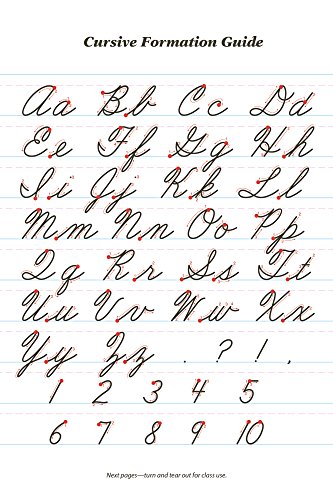 Cursive Formation Guide
Aa Bb Cc Dd
Ee Ff Gg Hh
Ii Jj Kk Ll
Mm Nn Oo Pp
Qq Rr Ss Tt
Uu Vv Ww Xx
Yy Zz . ? ! ,
1 2 3 4 5
6 7 8 9 10
Next pages—turn and tear out for class use.